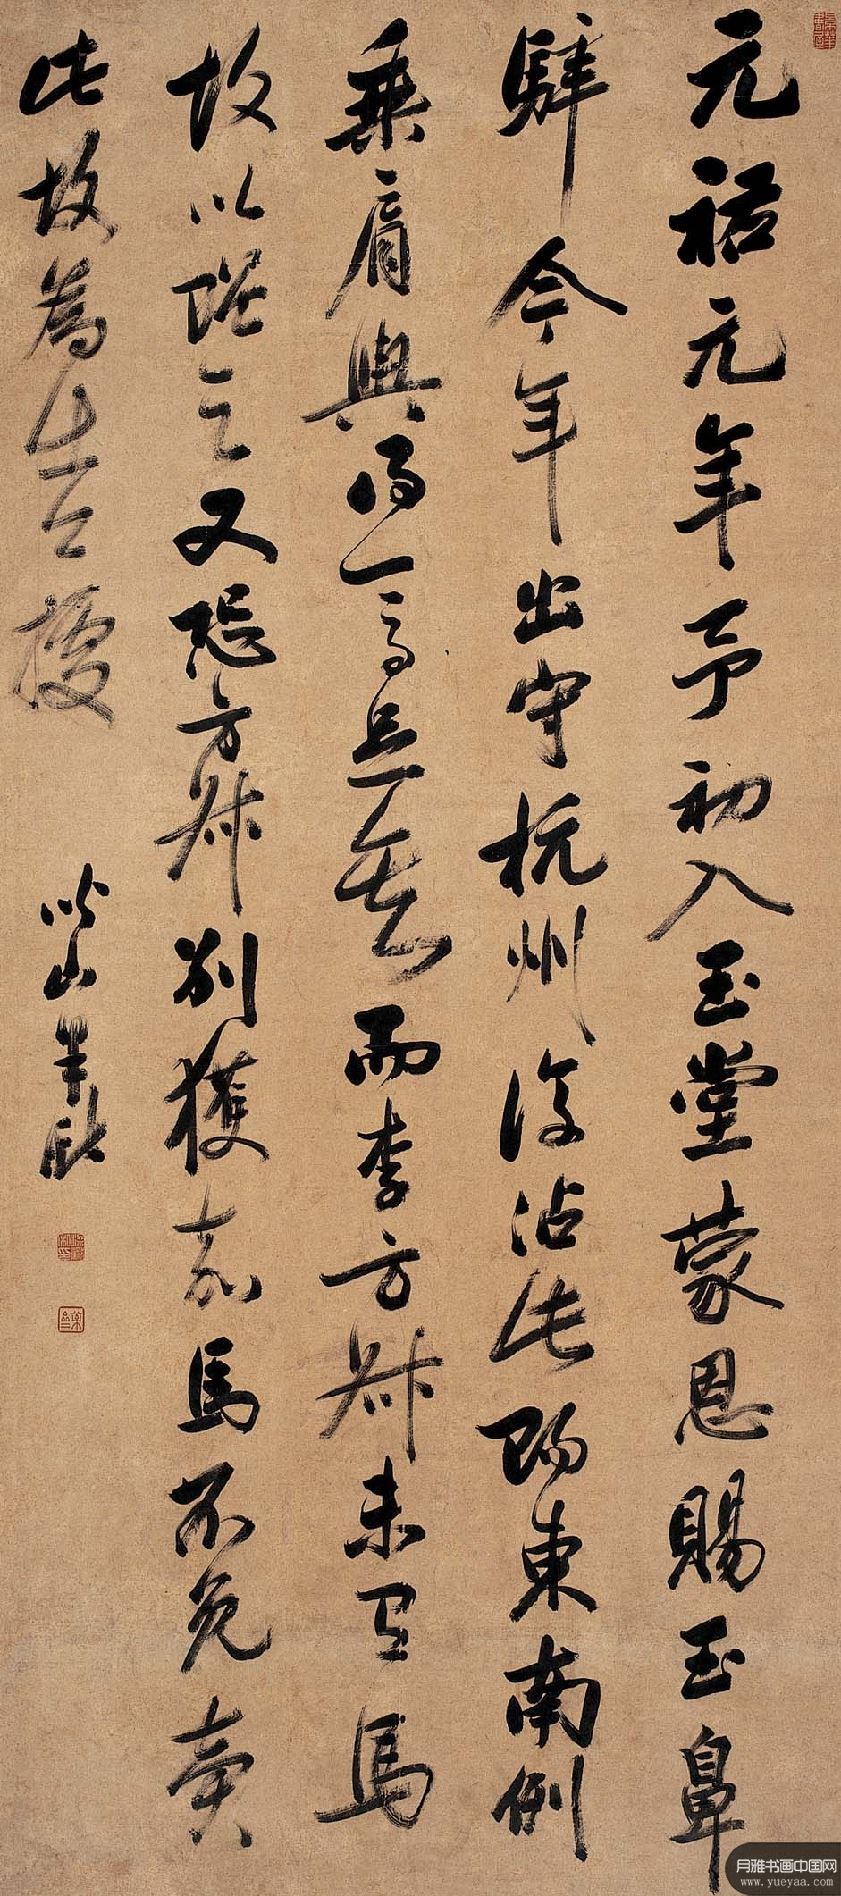 元祐元年予初入玉堂蒙恩賜玉鼻
騂今年出守杭州復沾此賜東南例
乘肩輿得一馬足矣而李方叔未有馬
故以贈之又恐方叔別獲嘉馬不免賣
此故為出公據
眺山畢
月雅书画中国网
www.yueyaa.com